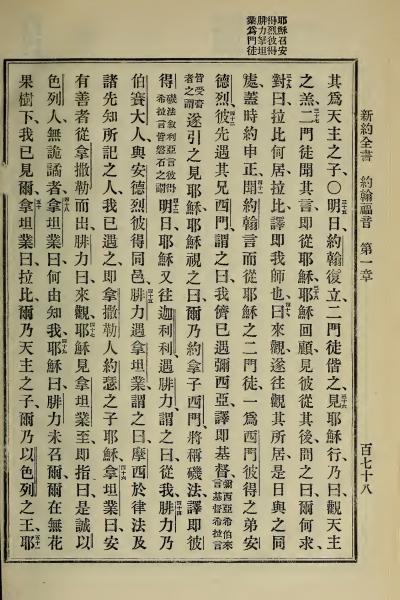 耶穌召安
得烈彼得
腓力拿坦
業爲門徒
新約全書　約翰福音　第一章　百七十八
其爲天主之子、〇三十五明日、約翰復立、二門徒偕之、三十六見耶穌行、乃曰、觀天主
之羔、三十七二門徒聞其言、即從耶穌、三十八耶穌回顧、見彼從其後、問之曰、爾何求、
對三十九曰、拉比何居、拉比譯即我師也、四十曰、來觀、遂往觀其所居、是日與之同
處、蓋時約申正、四十一聞約翰言而從耶穌之二門徒、一爲西門彼得之弟安
德烈、四十二彼先遇其兄西門、謂之曰、我儕已遇彌西亞、譯即基督、彌西亞希伯來言基督希拉言
皆受膏者之謂遂引之見耶穌、耶穌視之曰、爾乃約拿子西門、將稱磯法、譯即彼
得、磯法叙利亞言彼得希拉言皆磐石之謂四十三明日、耶穌又往迦利利、遇腓力、謂之曰、從我、四十四腓力乃
伯賽大人、與安德烈彼得同邑、四十五腓力遇拿坦業、謂之曰、摩西於律法及
諸先知所記之人、我已遇之、即拿撒勒人約瑟之子耶穌、四十六拿坦業曰、安
有善者從拿撒勒而出、腓力曰、來觀、四十七耶穌見拿坦業至、即指曰、是誠以
色列人、無詭譎者、四十八拿坦業曰、何由知我、耶穌曰、腓力未召爾、爾在無花
果樹下、我已見爾、四十九拿坦業曰、拉比、爾乃天主之子、爾乃以色列之王、五十耶